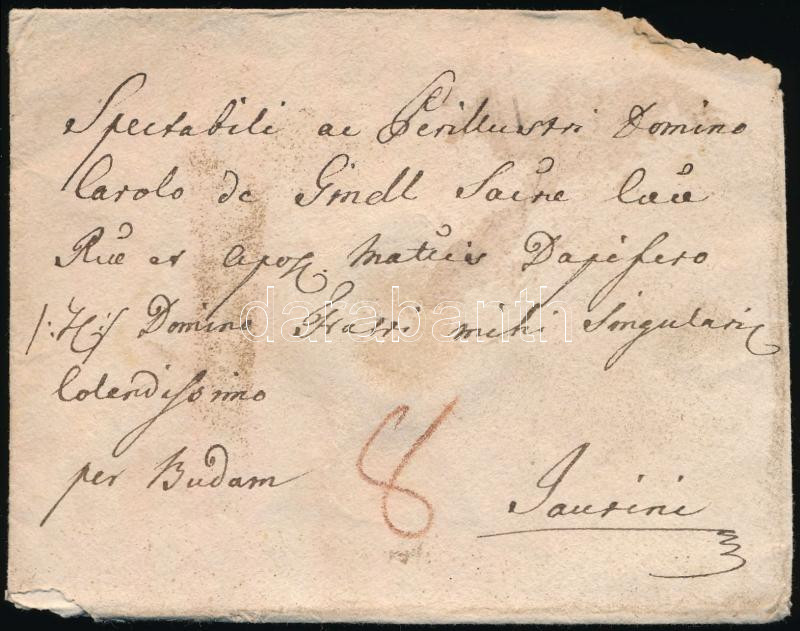 Spectabili ac Perillustri Domino
Carolo de Gmell Sacrae Caeae
Rae et Apos. Mattis Dapifero
Domino Fratri mihi Singulari
Colendissimo
per Budam 8 Jaurini
darabanth